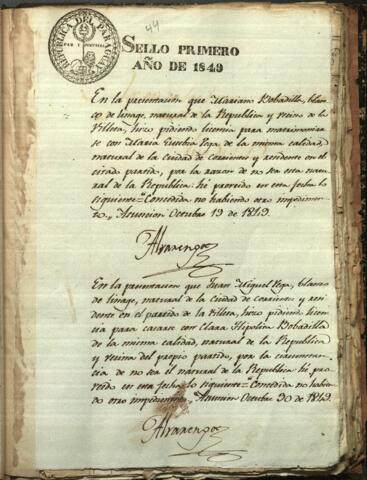 44
REPUBLICA DEL PARAGUAY
PAZ Y JUSTICIA
SELLO PRIMERO
AÑO DE 1849
En la presentacion que Mariano Bobadilla, blan-
co de linage, natural de la Republica y vecino de la
Villeta, hizo pidiendo licencia para matrimoniar
se con Maria Eusebia Vega de la misma calidad,
natural de la ciudad de Corrientes y residente en el
citado partido, por la razon de no ser esta natu-
ral de la Republica: hé proveido en esta fecha lo
siguiente = Concedida no habiendo otro impedimen-
to,, Asuncion Octubre 19 de 1849.
Alvarenga
En la presentacion que Juan Miguel Vega, blanco
de linage, natural de la Ciudad de Corrientes y resi-
dente en el partido de la Villeta, hizo pidiendo licen-
cia para casarse con Clara Hipolita Bobadilla
de la misma calidad, natural de la Republica
y vecina del propio partido, por la circunstan-
cia de no ser el natural de la Republica hé pro-
veido en esta fecha lo siguiente = Concedida no habien-
do otro impedimento,, Asuncion Octubre 30 de 1849.
Alvarenga